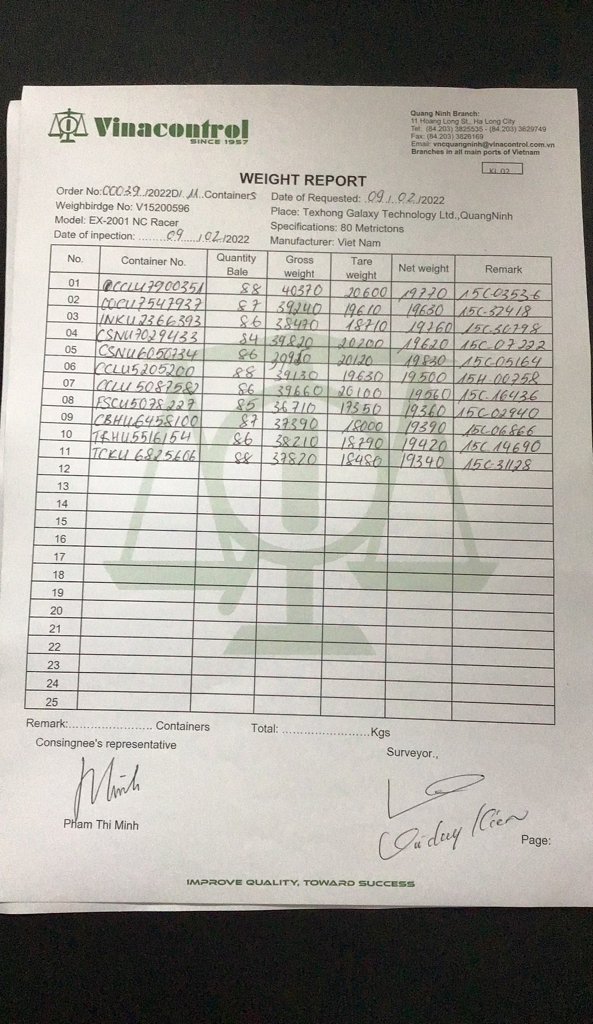 Vinacontrol
SINCE 1957
Quang Ninh Branch:
11 Hoang Long St., Ha Long City
Tel: (84.203) 3825535 - (84.203) 3629749
Fax: (84.203) 3626169
Email: vncquangninh@vinacontrol.com.vn
Branches in all main ports of Vietnam
KL 02
WEIGHT REPORT
Order No:00039../2022D/..11..Containers
Date of Requested: .09./.02./2022
Weighbirdge No: V15200596
Place: Texhong Galaxy Technology Ltd.,QuangNinh
Model: EX-2001 NC Racer
Specifications: 80 Metrictons
Date of inpection: ........09..../02./2022
Manufacturer: Viet Nam
No. Container No. Quantity Bale Gross weight Tare weight Net weight Remark
01 CCLU7900351 88 40370 20600 19770 15C-03536
02 COCU7547937 87 39240 19610 19630 15C-32418
03 INKU2366393 86 38470 18710 19760 15C-30798
04 CSNU7029433 84 39820 20200 19620 15C-07222
05 CSNU6050734 86 20120 19830 15C-05164
06 CCLU5205200 88 39130 19630 19500 15H-00758
07 CCLU5087582 86 39660 20100 19560 15C-16436
08 FSCU5078227 85 36710 17350 19360 15C-02940
09 CBHU6458100 87 37390 18000 19390 15C-06866
10 TRHU5516154 86 38210 18790 19420 15C-14690
11 TCKU6825606 88 37820 18480 19340 15C-31128
12
13
14
15
16
17
18
19
20
21
22
23
24
25
Remark:....................... Containers Total: ........................Kgs
Consingnee's representative
Surveyor.,
Minh
Pham Thi Minh
Page:
IMPROVE QUALITY, TOWARD SUCCESS